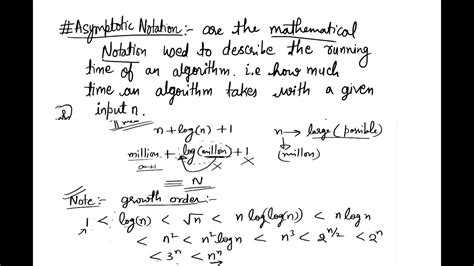 #Asymptotic Notation:- are the mathematical
Notation used to describe the running
time of an algorithm. i.e how much
time an algorithm takes with a given
input n.
n + log(n) + 1
n → large (possible)
million + log(millon) + 1
(millon)
= N
Note:- growth order:-
1 < log(n) < √n < n log(log(n)) < n log n
< n² < n² log n < n³ < 2^n/2 < 2^n
< 3^n < n^n